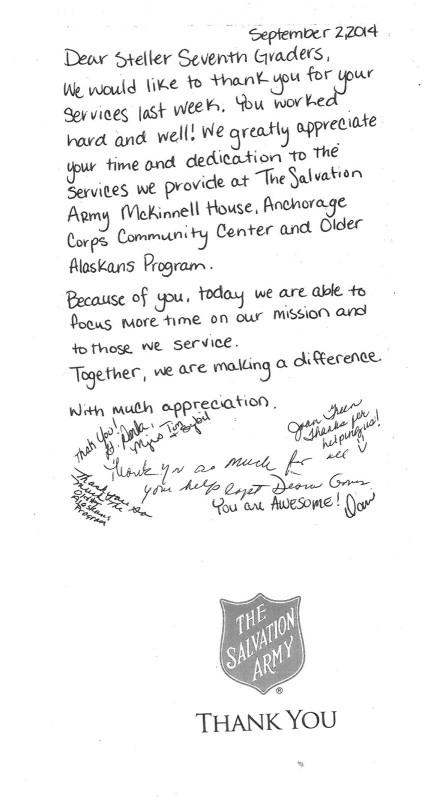 September 2, 2014
Dear Steller Seventh Graders,
We would like to thank you for your
Services last week. You worked
hard and well! We greatly appreciate
your time and dedication to the
Services we provide at The Salvation
Army McKinnell House, Anchorage
Corps Community Center and Older
Alaskans Program.
Because of you, today we are able to
focus more time on our mission and
to those we service.
Together, we are making a difference.
With much appreciation.
Thank You!
Thanks for
helping us!
Thank you so much for all
your help Capt
Thank you so
much
Older
Alaskans
Program
You are AWESOME!
THE
SALVATION
ARMY
®
THANK YOU